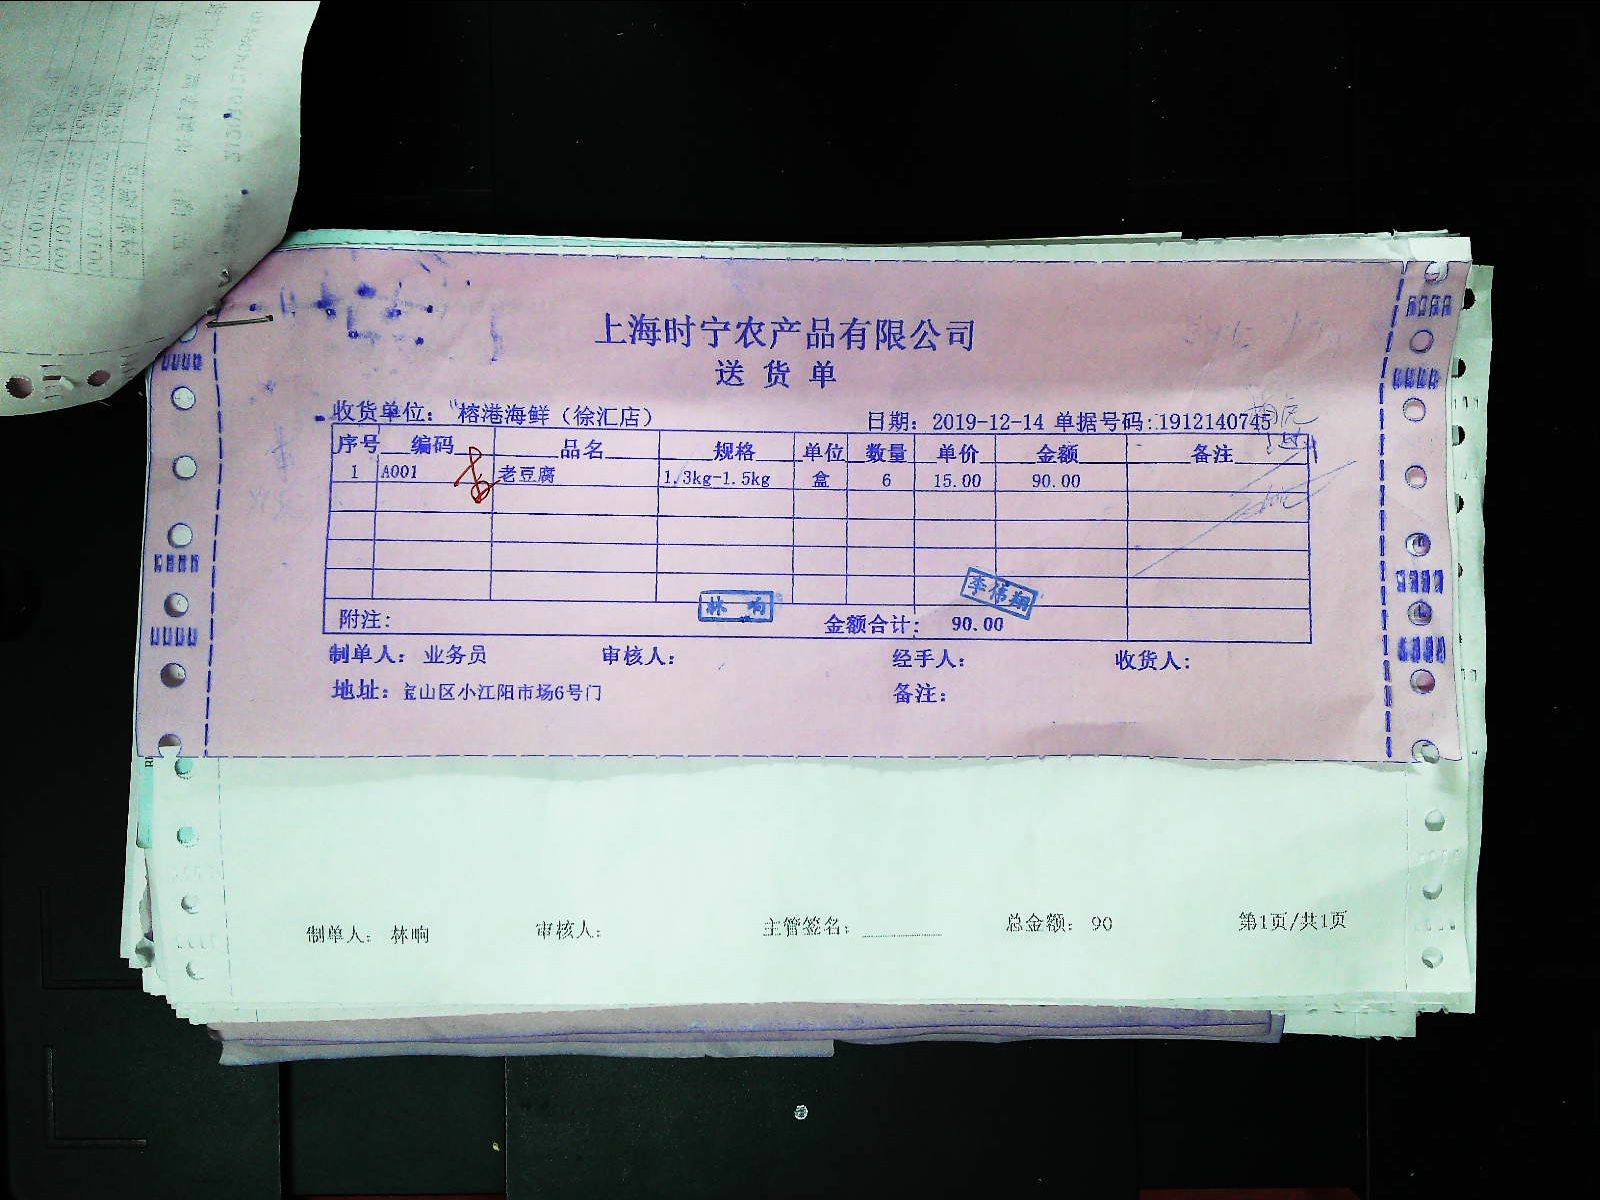 上海时宁农产品有限公司
送货单
收货单位：榕港海鲜（徐汇店） 日期：2019-12-14 单据号码：1912140745
序号 编码 品名 规格 单位 数量 单价 金额 备注
1 A001 老豆腐 1.3kg-1.5kg 盒 6 15.00 90.00
林响
李伟翔
附注： 金额合计： 90.00
制单人：业务员 审核人： 经手人： 收货人：
地址：宝山区小江阳市场6号门 备注：
制单人：林响 审核人： 主管签名： 总金额：90 第1页/共1页